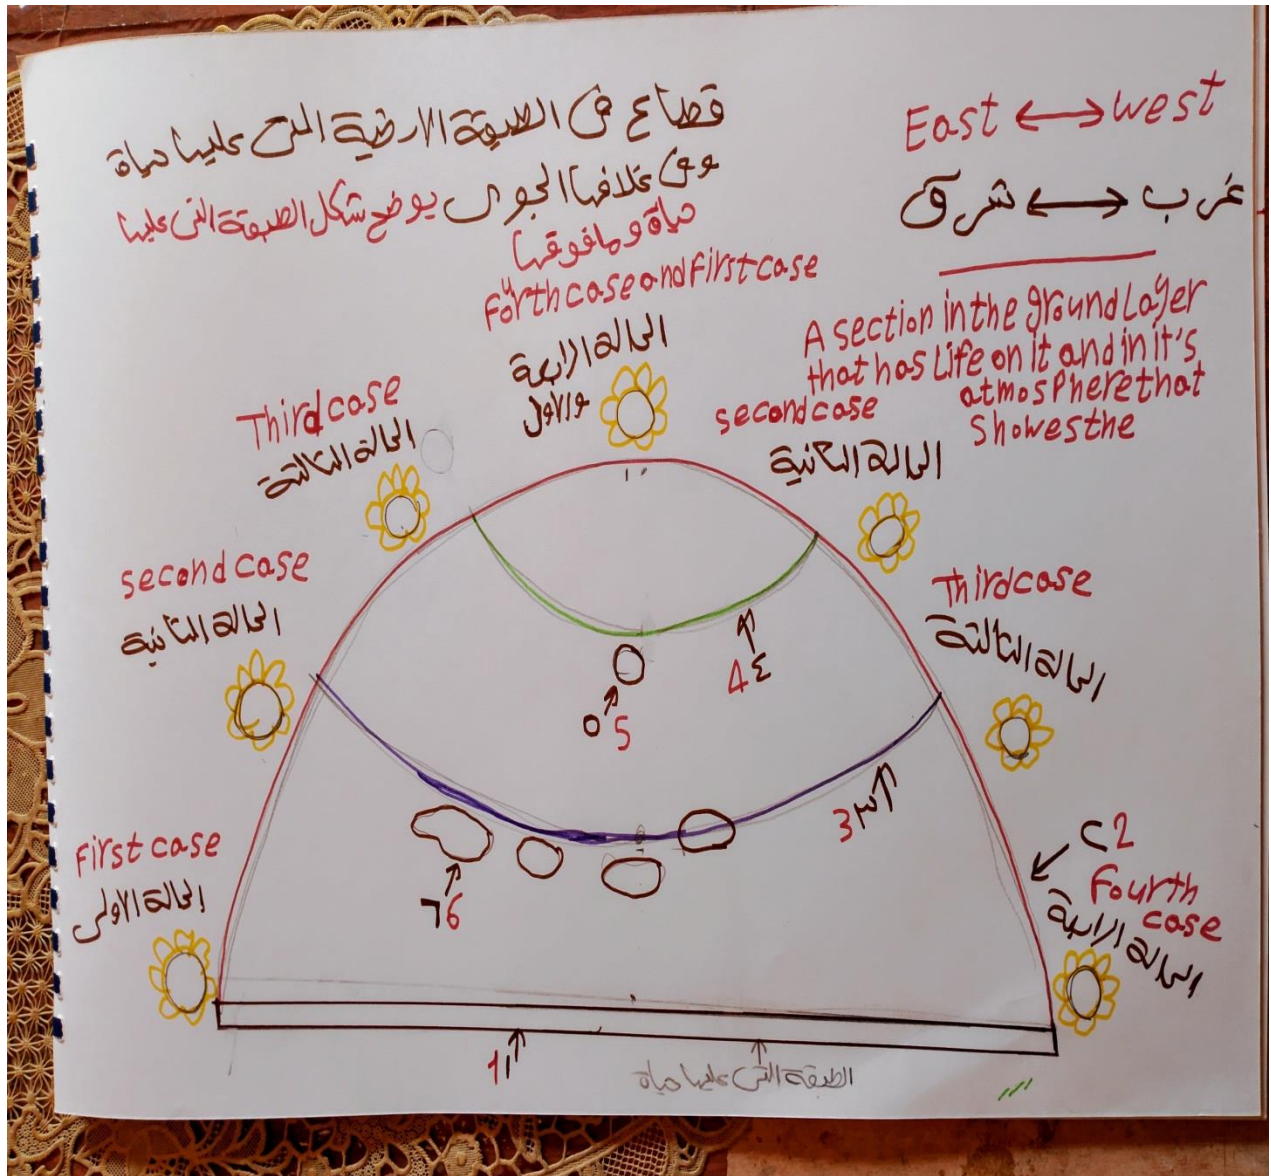 قطاع فى الطبقة الارضية التى عليها حياة
وفى غلافها الجوى يوضح شكل الطبقة التى عليها
حياة وما فوقها
East ↔ west
غرب ↔ شرق
A section in the ground Layer
that has Life on it and in it's
atmosphere that
Showes the
Fourth case and First case
الحالة الرابعة
والاولى
Third case
الحالة الثالثة
second case
الحالة الثانية
second case
الحالة الثانية
Third case
الحالة الثالثة
4 ٤
٥ 5
3 ٣
٦ 6
First case
الحالة الاولى
٢ 2
Fourth
case
الحالة الرابعة
1 ١
الطبقة التى عليها حياة